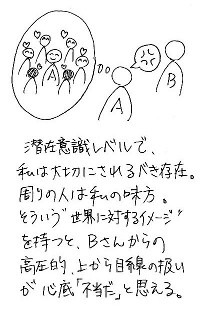 A
A
B
潜在意識レベルで、
私は大切にされるべき存在。
周りの人は私の味方。
そういう"世界に対するイメージ"
を持つと、Bさんからの
高圧的、上から目線の扱い
が心底「不当だ」と思える。